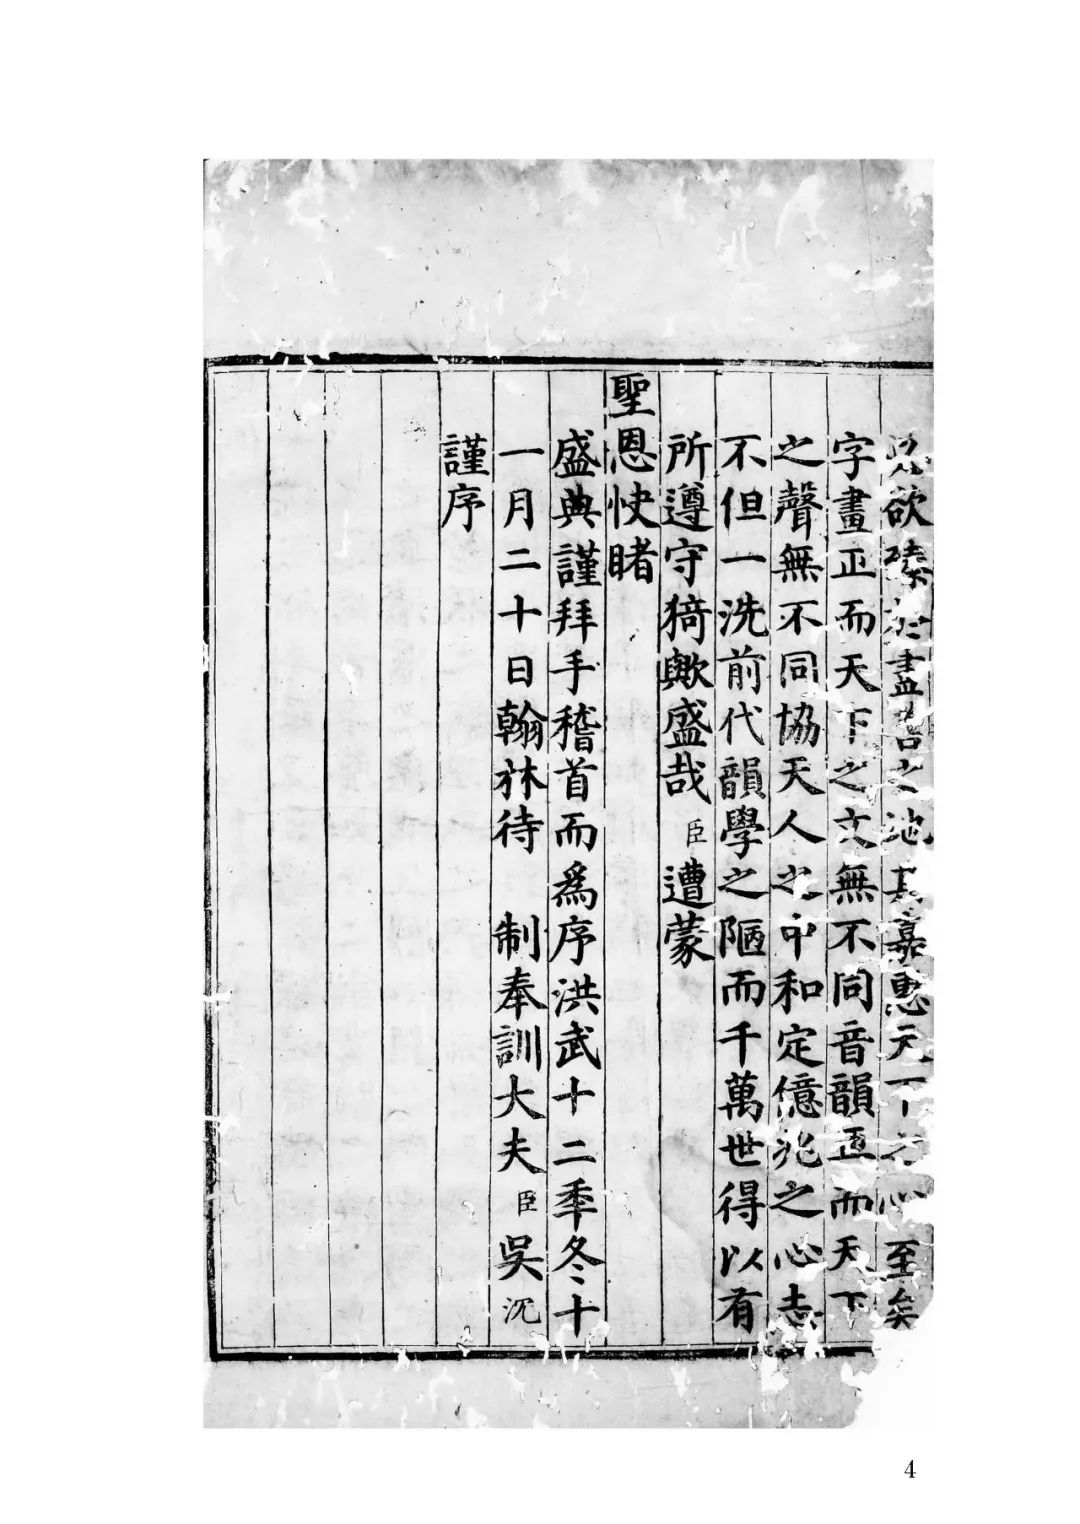 欲臻於盡善之地其嘉惠天下之心至矣
字畫正而天下之文無不同音韻正而天下
之聲無不同協天人之中和定億兆之心志
不但一洗前代韻學之陋而千萬世得以有
所遵守猗歟盛哉臣遭蒙
聖恩快睹
盛典謹拜手稽首而爲序洪武十二季冬十
一月二十日翰林待　制奉訓大夫臣吳沉
謹序
4